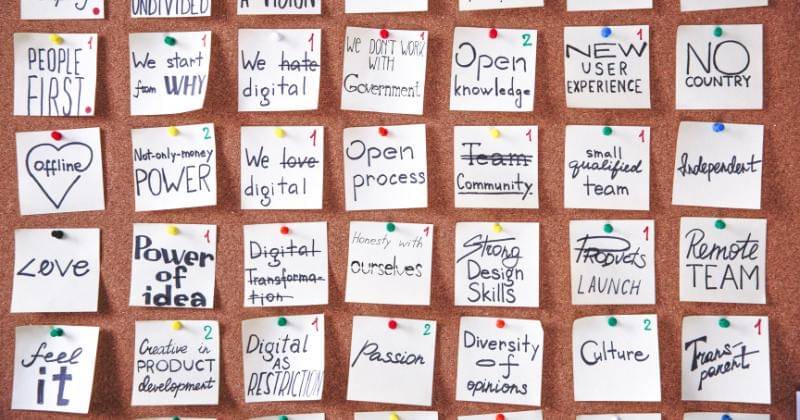 UNDIVIDED
A VISION
1
PEOPLE
FIRST.
1
We start
from WHY
1
We hate
digital
1
We DON'T WORK
WITH
Government
2
Open
knowledge
1
NEW
USER
EXPERIENCE
NO
COUNTRY
offline
2
Not-only-money
POWER
1
We love
digital
Open
process
1
Team
Community.
1
small
qualified
team
Independent
Love
1
Power
of
idea
1
Digital
Transforma-
tion
1
Honesty with
ourselves
Strong
Design
Skills
1
Products
LAUNCH
Remote
TEAM
feel
it
2
Creative in
PRODUCT
development
1
Digital
AS
RESTRICTION
2
Passion
Diversity
of
opinions
2
Culture
1
Trans-
parent